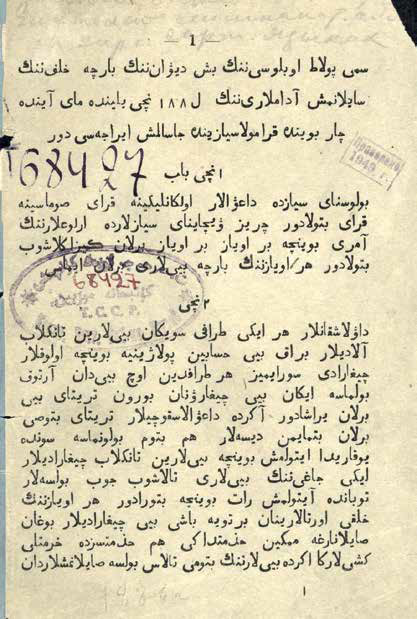 — 1 —
سمی پولاط اوبلوسی‌ننك بش دیوان‌ننك بارچه خلق‌ننك
سایلانمش آداملاری‌ننك ل ۱۸۸ نچی یلینده مای آینده
چار بویینه قرامولا سیازینه جاسالمش ایراجه‌سی دور
۱ نچی باب
68427
Проверено
1949 г.
بولوسنای سیازده داعوالار اولکانلیکینه قرای صوماسینه
قرای بتولادور چریز ویچاینای سیازلارده ارلوعلارننك
آمری بوینچه بر اویاز بر اویاز برلان کیزاکلاشوب
بتولادور هر اویازننك بارچه بی‌لاری برلان
68427
Г.С.С.Р.
۲ نچی
داولاشقانلار هر ایکی طرافی سویکان بی‌لارین تانکلاب
آلادیلار براق بی حسابین پولاژینیه بوینچه اولوقلار
چیغارادی سورایمیز هر طرافدین اوچ بی‌دان آرتوق
بولماسه ایکان بی چیغارژنان بورون تریتای بی
برلان یراشادور آکرده داعوالاسقوچیلار تریتای بتوصی
برلان بتمایمن دیسه‌لار هم بتوم بولونماسه سونده
یوقاریدا ایتولمش بوینچه بی‌لارین تانکلاب چیغارادیلار
ایکی جاغی‌ننك بی‌لاری تالاشوب جوب بولسه‌لار
توبانده آیتولمش رات بوینچه بتورادور هر اویازننك
خلقی اورتالارینان برتویه باشی بی چیغارادیلار بوغان
صایلانارغه ممکین حذمتداکی هم حذمتسزده خرمتلی
کشی‌لارکا اکرده بی‌لارننك بتومی تالاس بولسه صایلانمشلاردان
۱